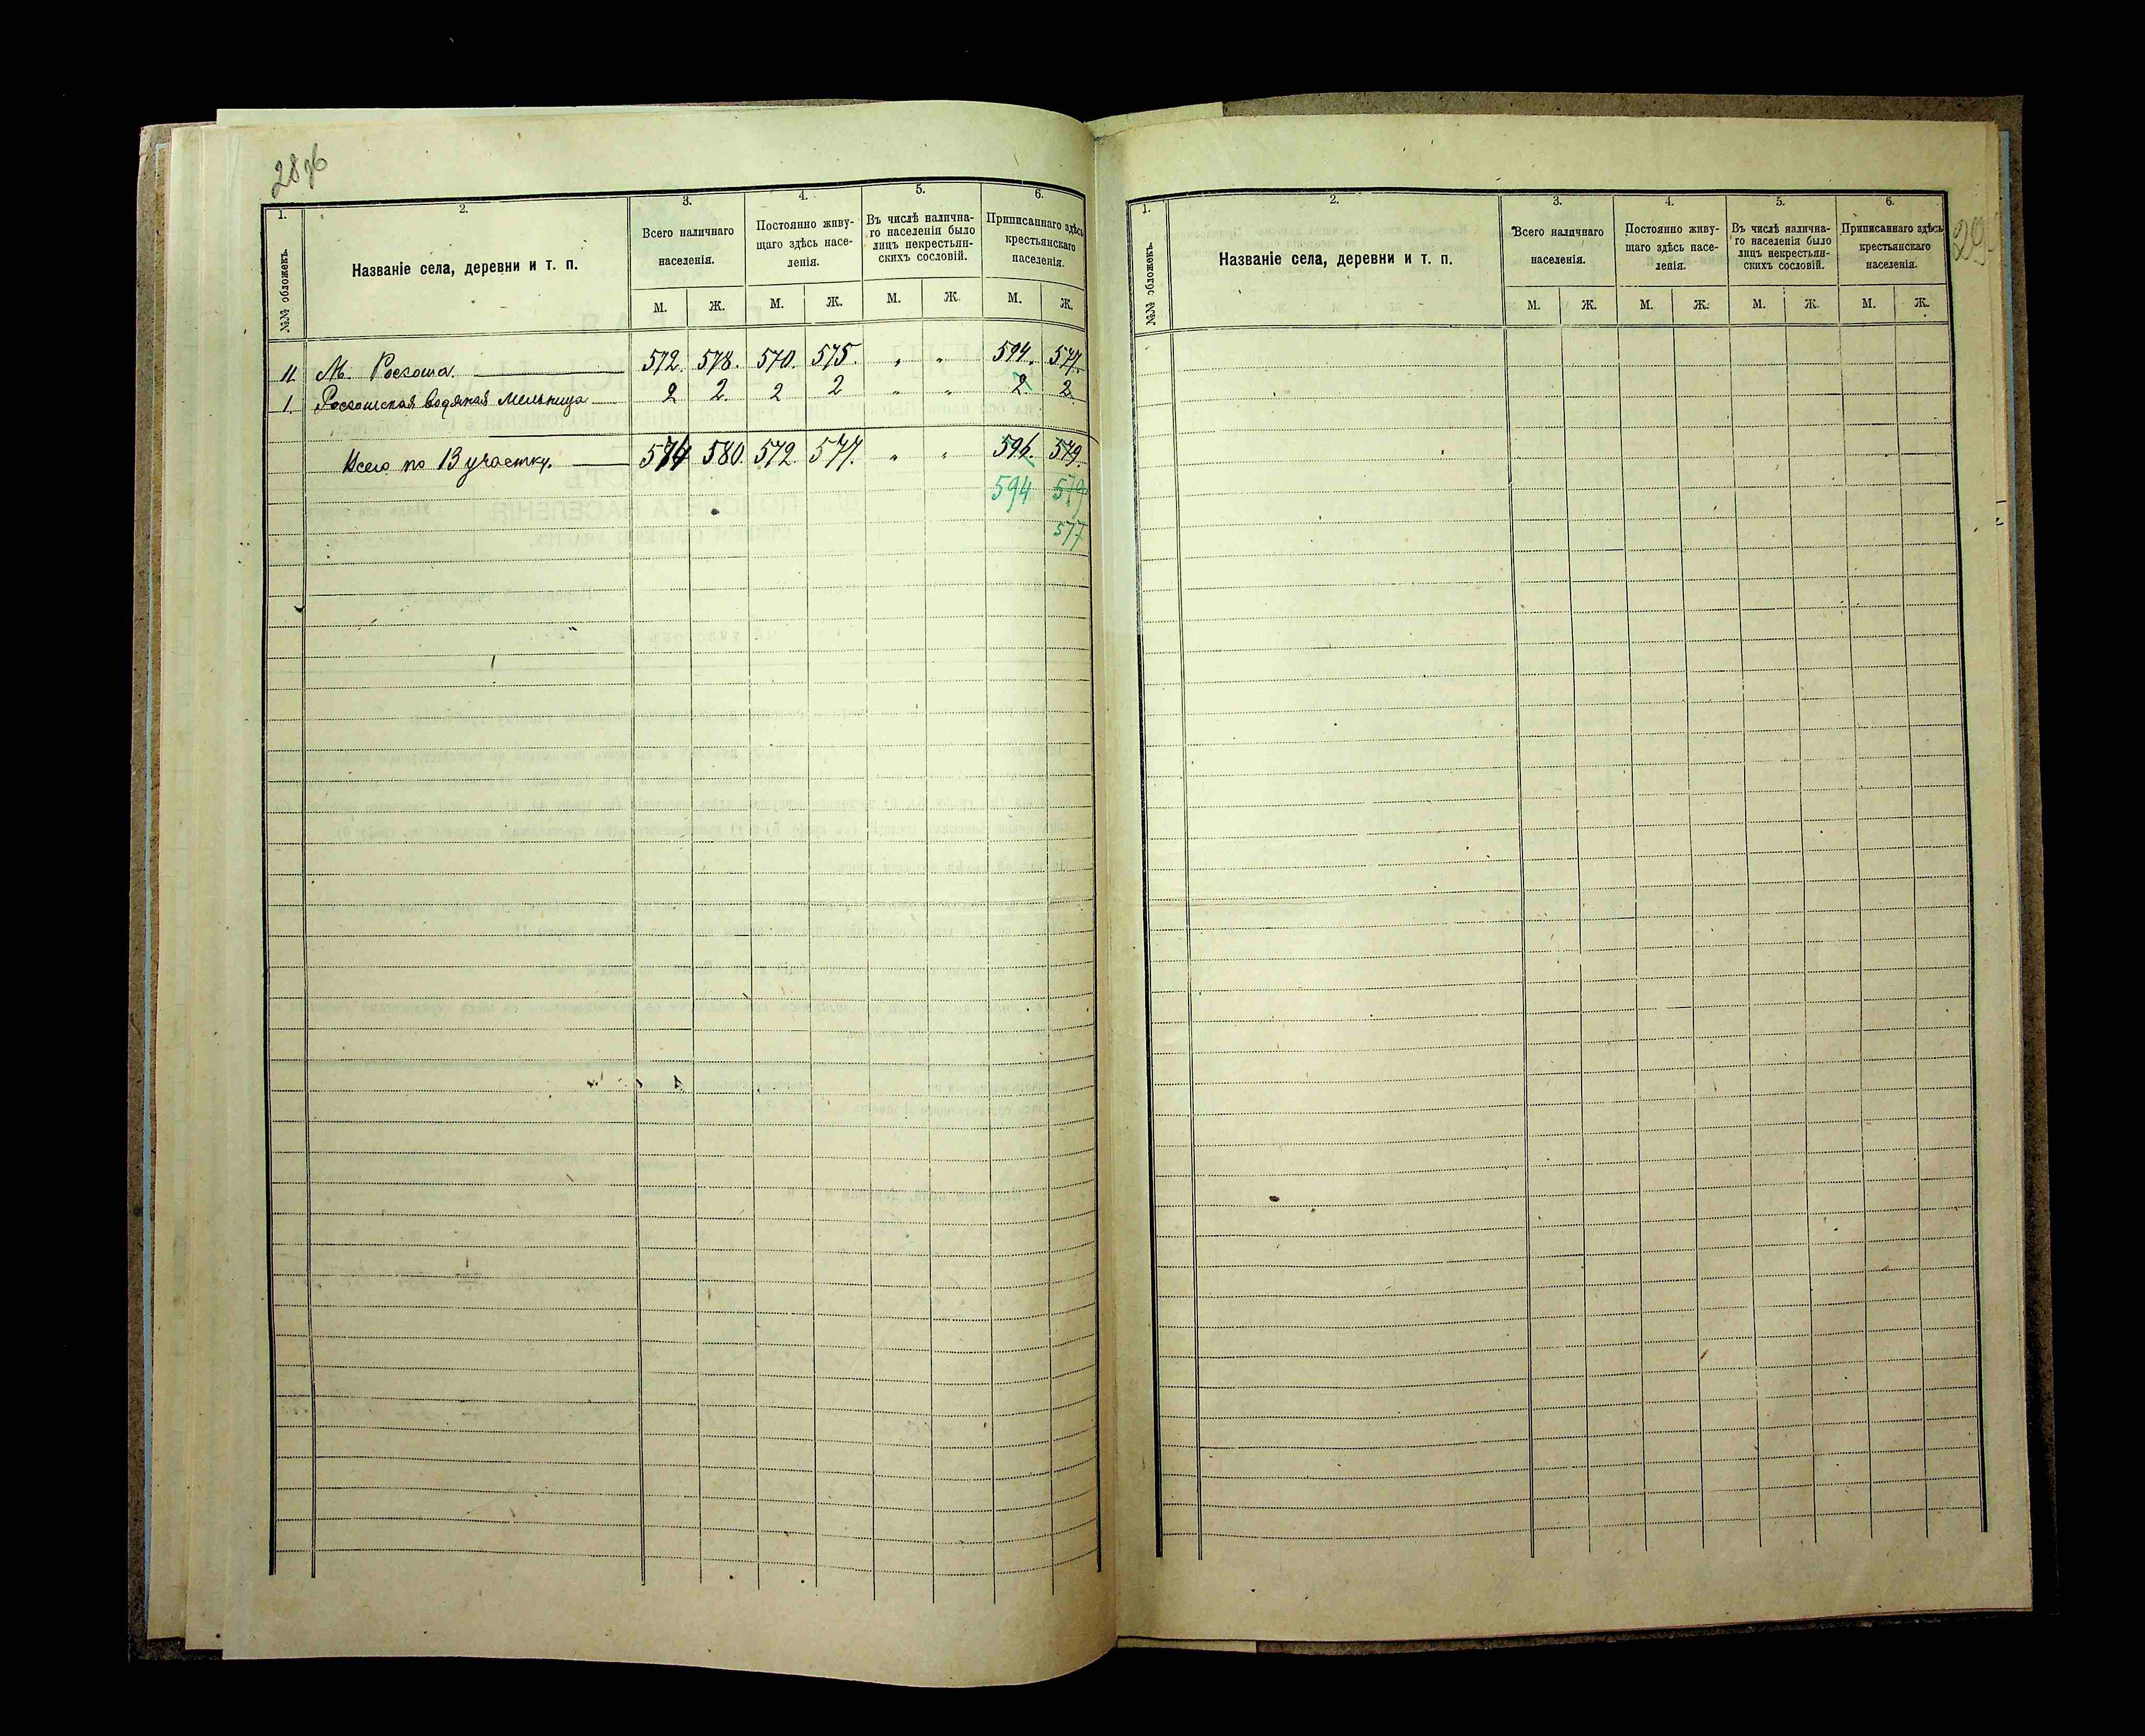 28об
1. 2. 3. 4. 5. 6.
№№ обложекъ.
Названіе села, деревни и т. п.
Всего наличнаго
населенія.
Постоянно живу-
щаго здѣсь насе-
ленія.
Въ числѣ налична-
го населенія было
лицъ некрестьян-
скихъ сословій.
Приписаннаго здѣсь
крестьянскаго
населенія.
М. Ж. М. Ж. М. Ж. М. Ж.
II М. Россоша. 572. 578. 570. 575. " " 594. 577.
I. Россошская водяная мельница 2 2. 2 2 " " 2. 2.
Всего по 13 участку. 574 580. 572. 577. " " 596. 579.
594 579
577
29
1. 2. 3. 4. 5. 6.
№№ обложекъ.
Названіе села, деревни и т. п.
Всего наличнаго
населенія.
Постоянно живу-
щаго здѣсь насе-
ленія.
Въ числѣ налична-
го населенія было
лицъ некрестьян-
скихъ сословій.
Приписаннаго здѣсь
крестьянскаго
населенія.
М. Ж. М. Ж. М. Ж. М. Ж.